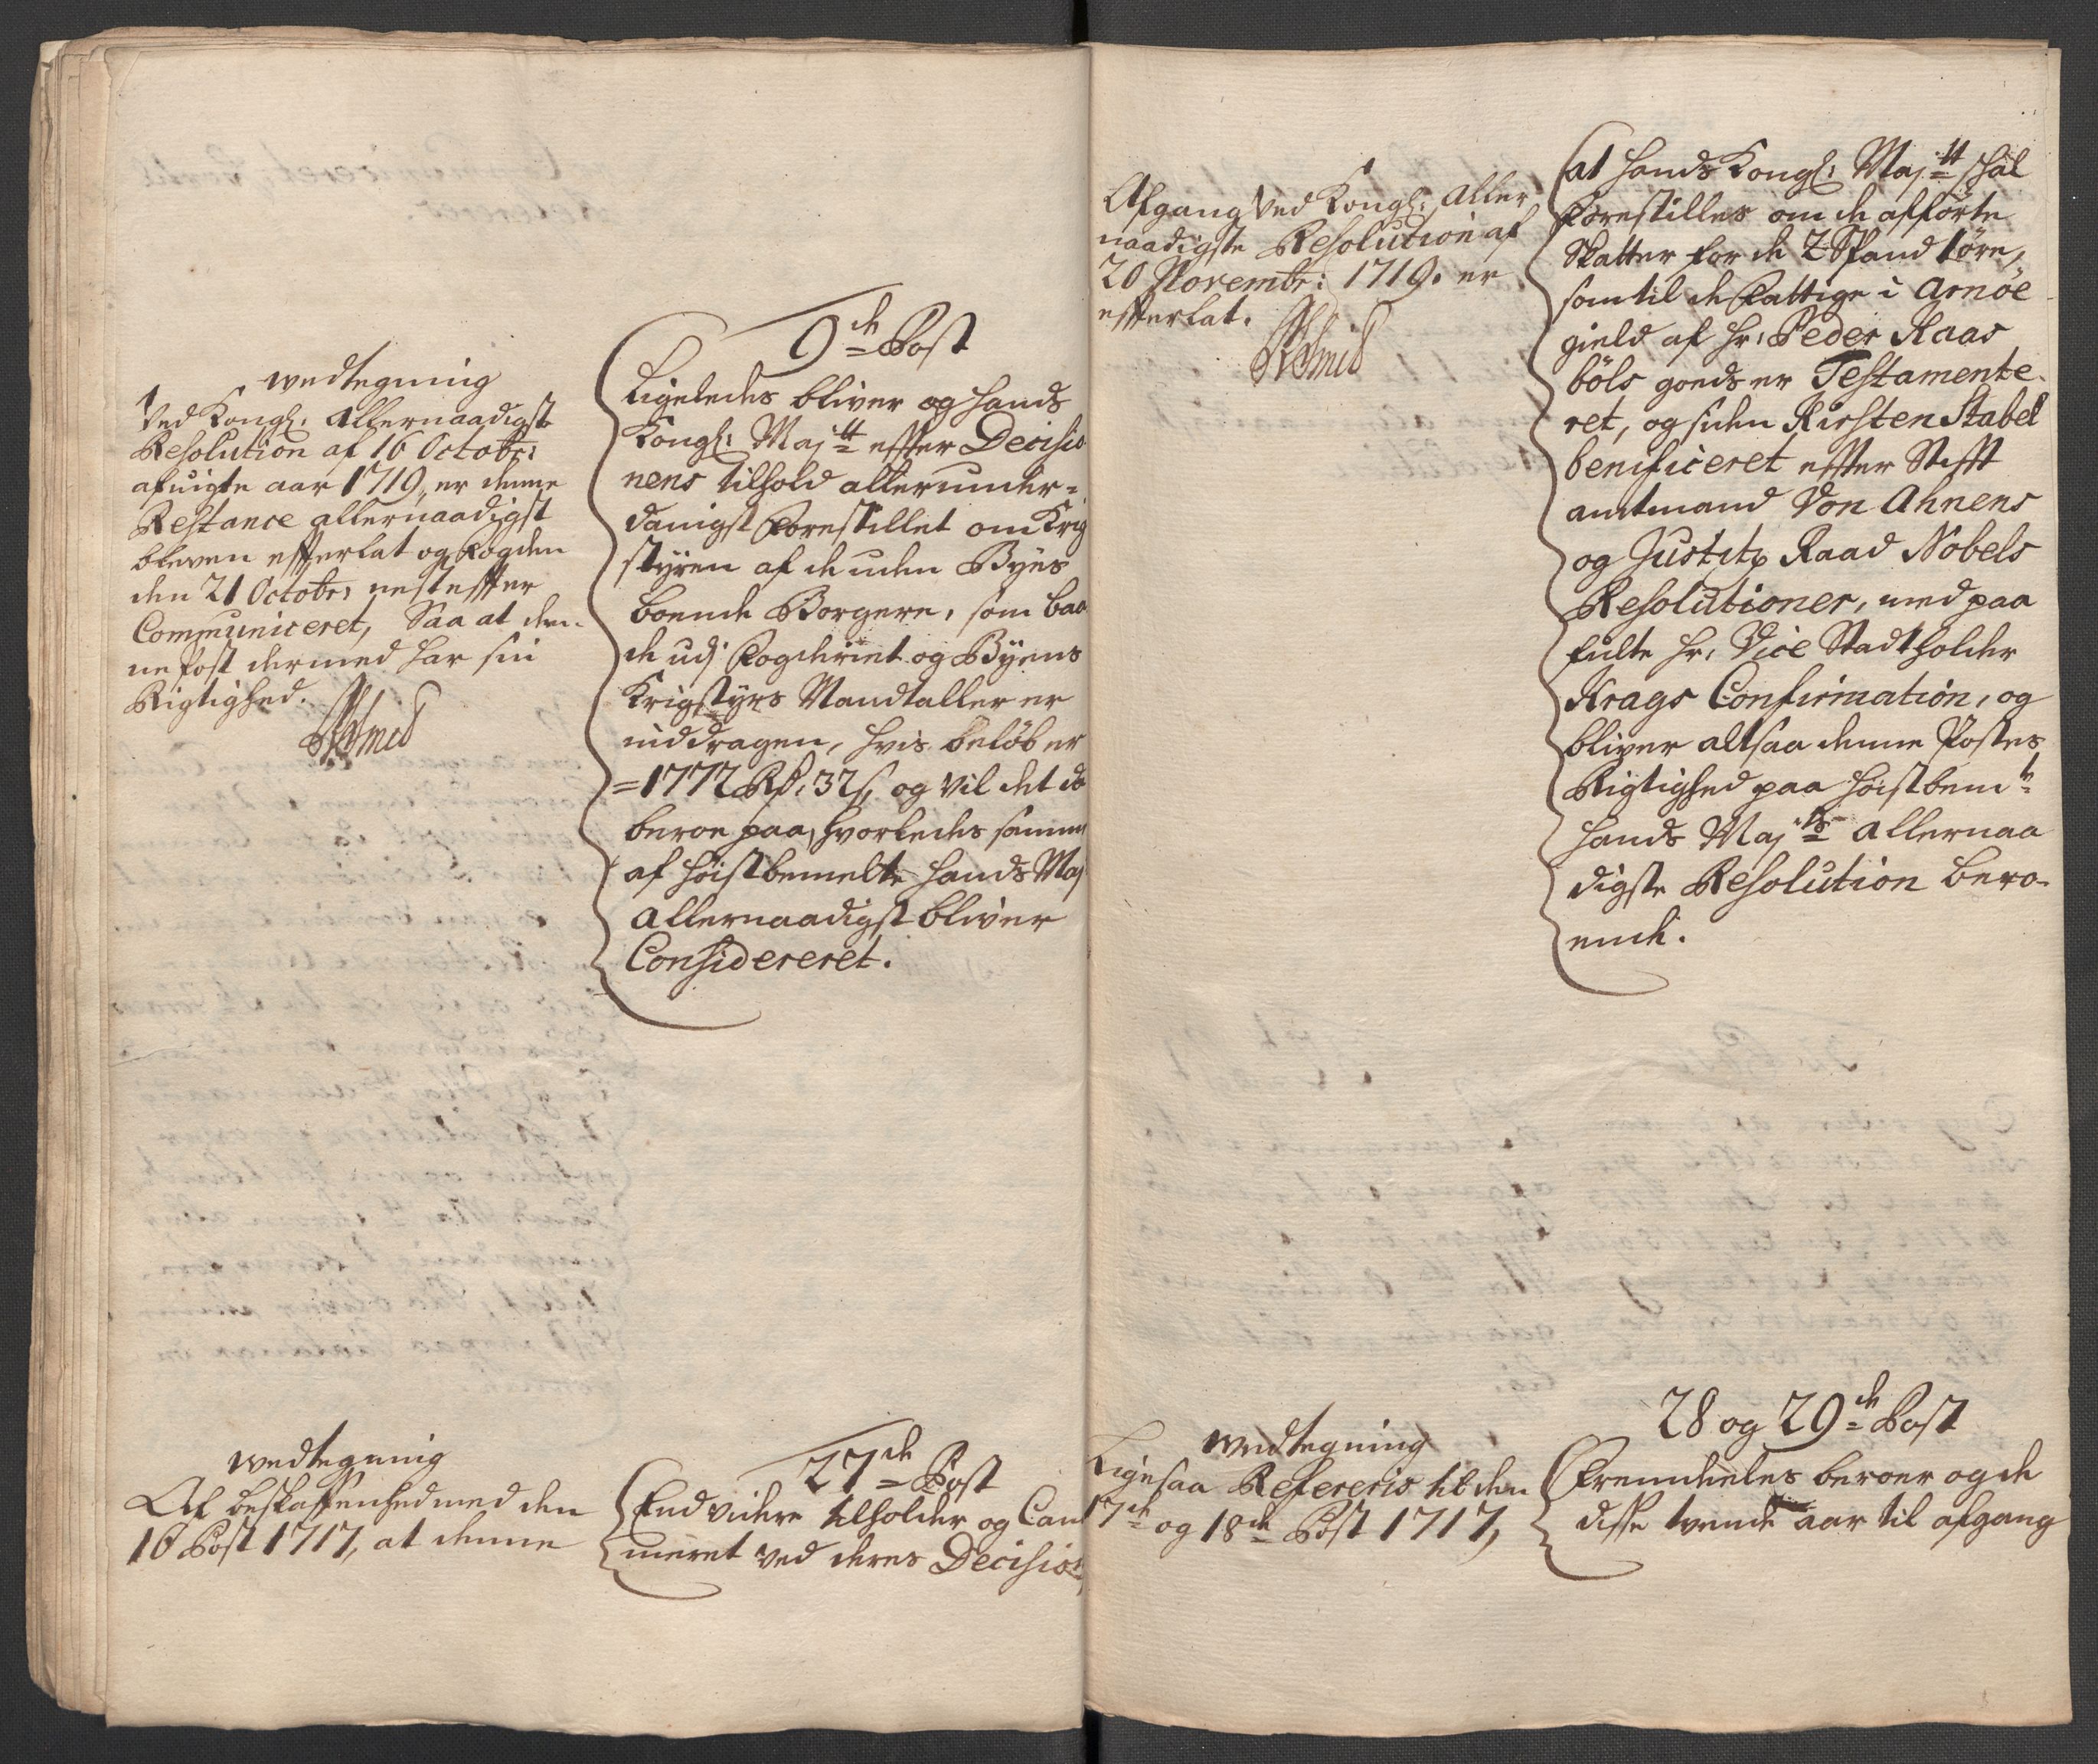 wedtegning
Ved Kongl. Allernaadigst
Resolution af 16 Octobr:
afuigte aar 1719, er denne
Restance allernaadigst
bleven efterlat og Fogden
den 21 Octobr: nest efter
Communiceret, Saa at den-
ne Post dermed har sin
Rigtighed.
9de Post
Ligeledes bliver og Hands
Kongl: Maj.tt efter Decisio
nens tilhold allerunder=
danigst Forestillet om Krig
styren af de uden Byes
boende Borgere, som baa
de udj Fogderiet og Byens
Krigstyrs Mandtaller er
inddragen, hvis beløb er
=1772 Rd. 32 s, og vil det da
beroe paa, hvorledes samme
af høistbemelte Hands Maj
allernaadigst bliver
Considereret.
wedtegning
Af beskaffenhed med den
16 Post 1717, at denne
27de Post
End videre tilholder og Cam
meret ved deres Decision,
Afgang Ved Kongl: Aller
naadigste Resolution af
20 Novembr: 1719. er
efterlat.
at Hands Kongl: Maj.tt skal
Forestilles om de afførte
Skatter for de 2 Spand 1 øre,
som til de Fattige i Arnøe
gield af Hr: Peder Kaas
bøls goeds er Testamente-
ret, og siden Kirsten Stabel
benificeret efter Stift
amtmand Von Ahnens
og Justitz Raad Nobels
Resolutioner, med paa
fulte Hr. Vice Stadtholder
Krags Confirmation, og
bliver altsaa denne Postes
Rigtighed paa høistbemte
Hands Maj.ts allernaa
digste Resolution bero-
ende.
wedtegning
Ligesaa Refereris til den
17de og 18de Post 1717,
28 og 29de Post
Fremdeeles beroer og de
disse tvende aar til afgang